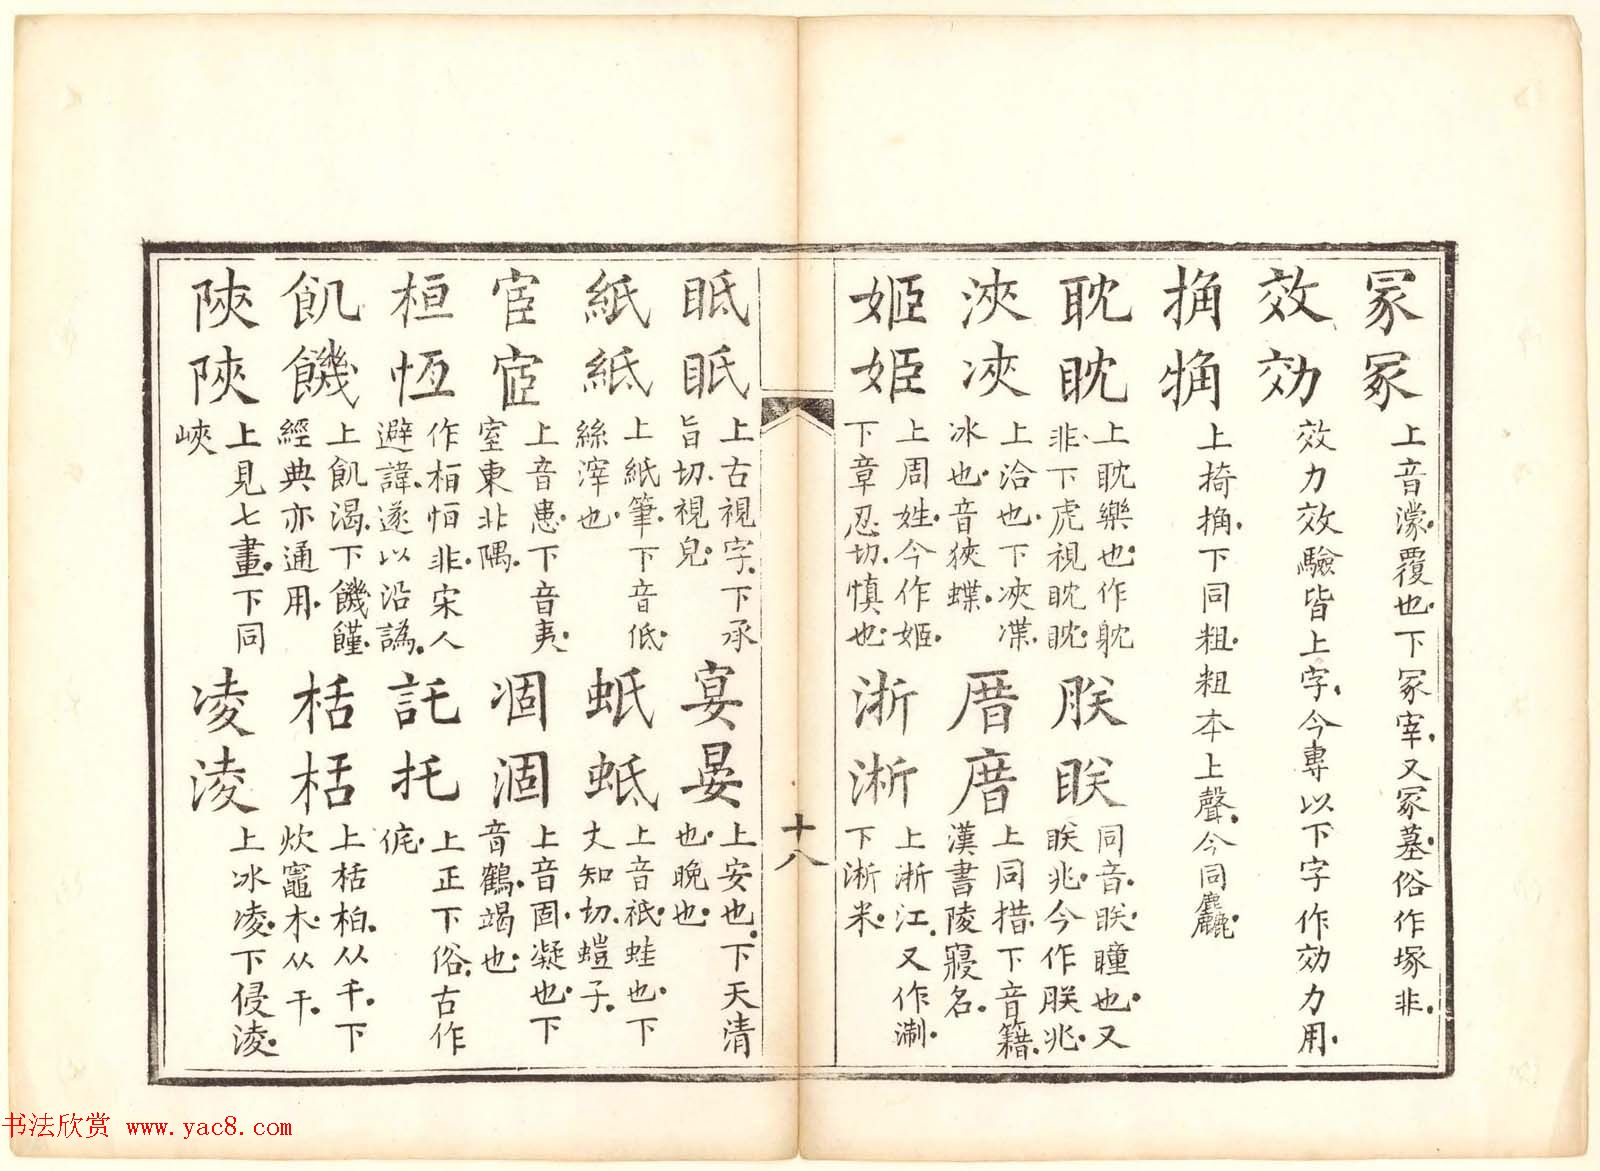 冡冢 上音濛覆也下冢宰又冢墓俗作塚非
效効 效力效驗皆上字今專以下字作効力用
捔觕 上掎捔下同粗粗本上聲今同麤
耽眈 上耽樂也作躭
非下虎視眈眈
朕眹 同音眹瞳也又
眹兆今作朕兆
浹浹 上洽也下浹渫
冰也音狹蝶
厝庴 上同措下音籍
漢書陵寢名
姬姫 上周姓今作姬
下章忍切慎也
浙淅 上浙江又作淛
下淅米
十八
眂眡 上古視字下承
旨切視皃
宴晏 上安也下天清
也晚也
紙紙 上紙筆下音低
絲滓也
蚔蚳 上音祇蛙也下
丈知切螘子
宦宧 上音患下音夷
室東非隅
凅涸 上音固凝也下
音鶴竭也
桓恆 作栢恒非宋人
避諱遂以沿譌
託托 上正下俗古作
侂
飢饑 上飢渴下饑饉
經典亦通用
栝栝 上栝柏从千下
炊竈木从干
陝陜 上見七畫下同
峽
凌淩 上冰凌下侵淩
书法欣赏 www.yac8.com